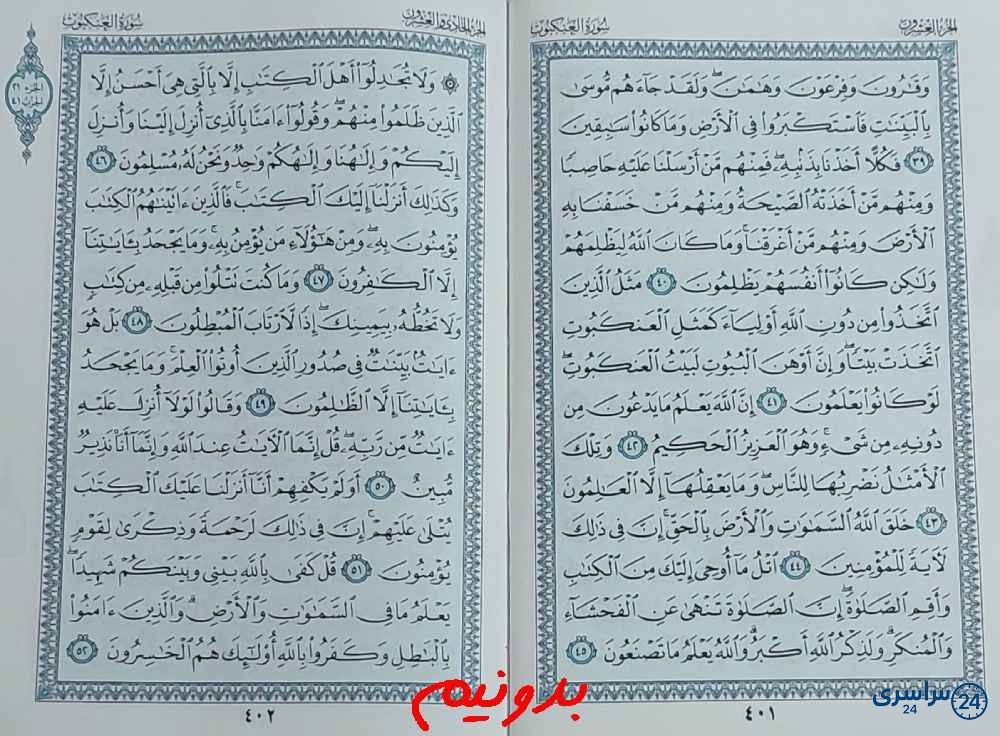 الجزء العشرون
سورة العنكبوت
وَقَٰرُونَ وَفِرْعَوْنَ وَهَٰمَٰنَ ۖ وَلَقَدْ جَآءَهُم مُّوسَىٰ
بِٱلْبَيِّنَٰتِ فَٱسْتَكْبَرُوا۟ فِى ٱلْأَرْضِ وَمَا كَانُوا۟ سَٰبِقِينَ
٣٩ فَكُلًّا أَخَذْنَا بِذَنۢبِهِۦ ۖ فَمِنْهُم مَّنْ أَرْسَلْنَا عَلَيْهِ حَاصِبًا
وَمِنْهُم مَّنْ أَخَذَتْهُ ٱلصَّيْحَةُ وَمِنْهُم مَّنْ خَسَفْنَا بِهِ
ٱلْأَرْضَ وَمِنْهُم مَّنْ أَغْرَقْنَا ۚ وَمَا كَانَ ٱللَّهُ لِيَظْلِمَهُمْ
وَلَٰكِن كَانُوٓا۟ أَنفُسَهُمْ يَظْلِمُونَ ٤٠ مَثَلُ ٱلَّذِينَ
ٱتَّخَذُوا۟ مِن دُونِ ٱللَّهِ أَوْلِيَآءَ كَمَثَلِ ٱلْعَنكَبُوتِ
ٱتَّخَذَتْ بَيْتًا ۖ وَإِنَّ أَوْهَنَ ٱلْبُيُوتِ لَبَيْتُ ٱلْعَنكَبُوتِ ۖ
لَوْ كَانُوا۟ يَعْلَمُونَ ٤١ إِنَّ ٱللَّهَ يَعْلَمُ مَا يَدْعُونَ مِن
دُونِهِۦ مِن شَىْءٍ ۚ وَهُوَ ٱلْعَزِيزُ ٱلْحَكِيمُ ٤٢ وَتِلْكَ
ٱلْأَمْثَٰلُ نَضْرِبُهَا لِلنَّاسِ ۖ وَمَا يَعْقِلُهَآ إِلَّا ٱلْعَٰلِمُونَ
٤٣ خَلَقَ ٱللَّهُ ٱلسَّمَٰوَٰتِ وَٱلْأَرْضَ بِٱلْحَقِّ ۚ إِنَّ فِى ذَٰلِكَ
لَءَايَةً لِّلْمُؤْمِنِينَ ٤٤ ٱتْلُ مَآ أُوحِىَ إِلَيْكَ مِنَ ٱلْكِتَٰبِ
وَأَقِمِ ٱلصَّلَوٰةَ ۖ إِنَّ ٱلصَّلَوٰةَ تَنْهَىٰ عَنِ ٱلْفَحْشَآءِ
وَٱلْمُنكَرِ ۗ وَلَذِكْرُ ٱللَّهِ أَكْبَرُ ۗ وَٱللَّهُ يَعْلَمُ مَا تَصْنَعُونَ ٤٥
٤٠١
الجزء الحادي والعشرون
سورة العنكبوت
الجزء ٢١
الحزب ٤١
۞ وَلَا تُجَٰدِلُوٓا۟ أَهْلَ ٱلْكِتَٰبِ إِلَّا بِٱلَّتِى هِىَ أَحْسَنُ إِلَّا
ٱلَّذِينَ ظَلَمُوا۟ مِنْهُمْ ۖ وَقُولُوٓا۟ ءَامَنَّا بِٱلَّذِىٓ أُنزِلَ إِلَيْنَا وَأُنزِلَ
إِلَيْكُمْ وَإِلَٰهُنَا وَإِلَٰهُكُمْ وَٰحِدٌ وَنَحْنُ لَهُۥ مُسْلِمُونَ ٤٦
وَكَذَٰلِكَ أَنزَلْنَآ إِلَيْكَ ٱلْكِتَٰبَ ۚ فَٱلَّذِينَ ءَاتَيْنَٰهُمُ ٱلْكِتَٰبَ
يُؤْمِنُونَ بِهِۦ ۖ وَمِنْ هَٰٓؤُلَآءِ مَن يُؤْمِنُ بِهِۦ ۚ وَمَا يَجْحَدُ بِـَٔايَٰتِنَآ
إِلَّا ٱلْكَٰفِرُونَ ٤٧ وَمَا كُنتَ تَتْلُوا۟ مِن قَبْلِهِۦ مِن كِتَٰبٍ
وَلَا تَخُطُّهُۥ بِيَمِينِكَ ۖ إِذًا لَّٱرْتَابَ ٱلْمُبْطِلُونَ ٤٨ بَلْ هُوَ
ءَايَٰتٌۢ بَيِّنَٰتٌ فِى صُدُورِ ٱلَّذِينَ أُوتُوا۟ ٱلْعِلْمَ ۚ وَمَا يَجْحَدُ
بِـَٔايَٰتِنَآ إِلَّا ٱلظَّٰلِمُونَ ٤٩ وَقَالُوا۟ لَوْلَآ أُنزِلَ عَلَيْهِ
ءَايَٰتٌ مِّن رَّبِّهِۦ ۖ قُلْ إِنَّمَا ٱلْءَايَٰتُ عِندَ ٱللَّهِ وَإِنَّمَآ أَنَا۠ نَذِيرٌ
مُّبِينٌ ٥٠ أَوَلَمْ يَكْفِهِمْ أَنَّآ أَنزَلْنَا عَلَيْكَ ٱلْكِتَٰبَ
يُتْلَىٰ عَلَيْهِمْ ۚ إِنَّ فِى ذَٰلِكَ لَرَحْمَةً وَذِكْرَىٰ لِقَوْمٍ
يُؤْمِنُونَ ٥١ قُلْ كَفَىٰ بِٱللَّهِ بَيْنِى وَبَيْنَكُمْ شَهِيدًا ۖ
يَعْلَمُ مَا فِى ٱلسَّمَٰوَٰتِ وَٱلْأَرْضِ ۗ وَٱلَّذِينَ ءَامَنُوا۟
بِٱلْبَٰطِلِ وَكَفَرُوا۟ بِٱللَّهِ أُو۟لَٰٓئِكَ هُمُ ٱلْخَٰسِرُونَ ٥٢
٤٠٢
بدونیم
سراسری 24
24